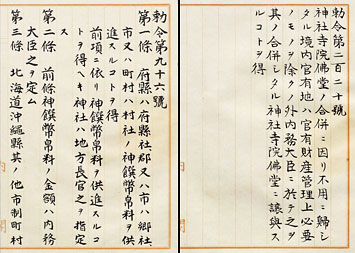 勅令第二百二十號
神社寺院佛堂ノ合併ニ因リ不用ニ歸シ
タル境内官有地ハ官有財産管理上必要
ノモノヲ除ク外内務大臣ニ於テ之ヲ
其ノ合併シタル神社寺院佛堂ニ譲與ス
ルコトヲ得
勅令第九十六號
第一條 府縣ハ府縣社郡又ハ市ハ郷社
市又ハ町村ハ村社ノ神饌幣帛料ヲ供
進スルコトヲ得
前項ニ依リ神饌幣帛料ヲ供進スルコ
トヲ得ヘキ神社ハ地方長官之ヲ指定
ス
第二條 前條神饌幣帛料ノ金額ハ内務
大臣之ヲ定ム
第三條 北海道沖繩縣其ノ他市制町村